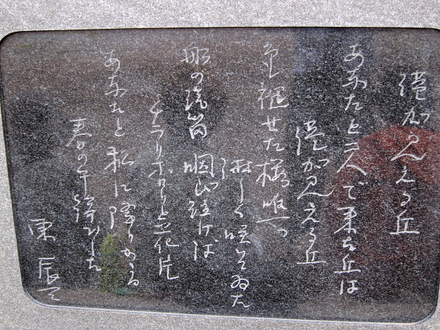 港が見える丘
あなたと二人で来た丘は
港が見える丘
色褪せた桜唯一つ
淋しく咲いていた
船の汽笛咽び泣けば
チラリホロリと花片
あなたと私に降りかかる
春の午後でした
東 辰三